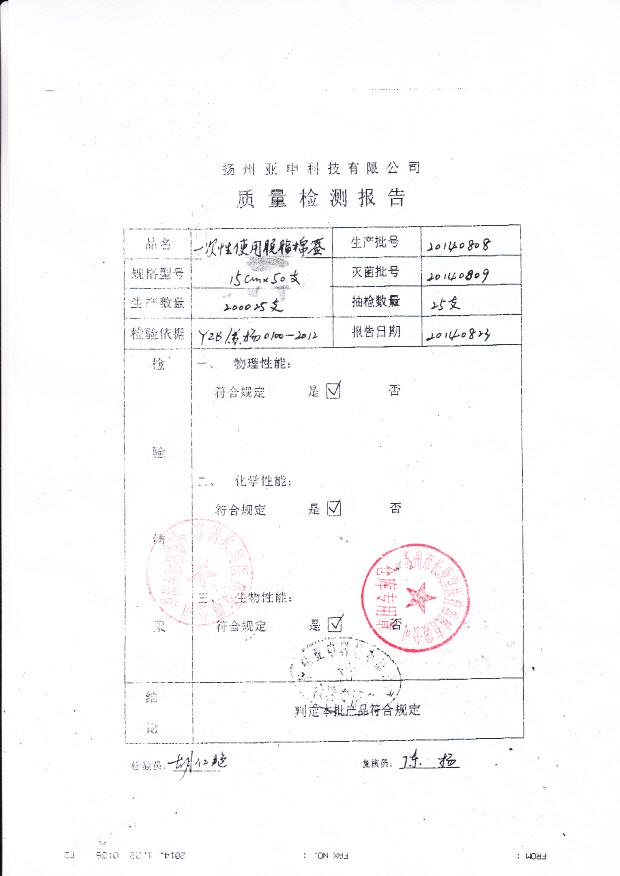 扬州亚申科技有限公司
质量检测报告
品名 一次性使用脱脂棉签 生产批号 20140808
规格型号 15cm×50支 灭菌批号 20140809
生产数量 200025支 抽检数量 25支
检验依据 YZB/苏扬0100-2012 报告日期 20140823
检 一、 物理性能:
符合规定 是 ☑ 否
验
二、 化学性能:
符合规定 是 ☑ 否
结
三、 生物性能:
果 符合规定 是 ☑ 否
仓库专用章
结
论
判定本批产品符合规定
检验员: 复核员: 陈扬
FROM : FAX NO. : 2014. 1.22 0:36 P2